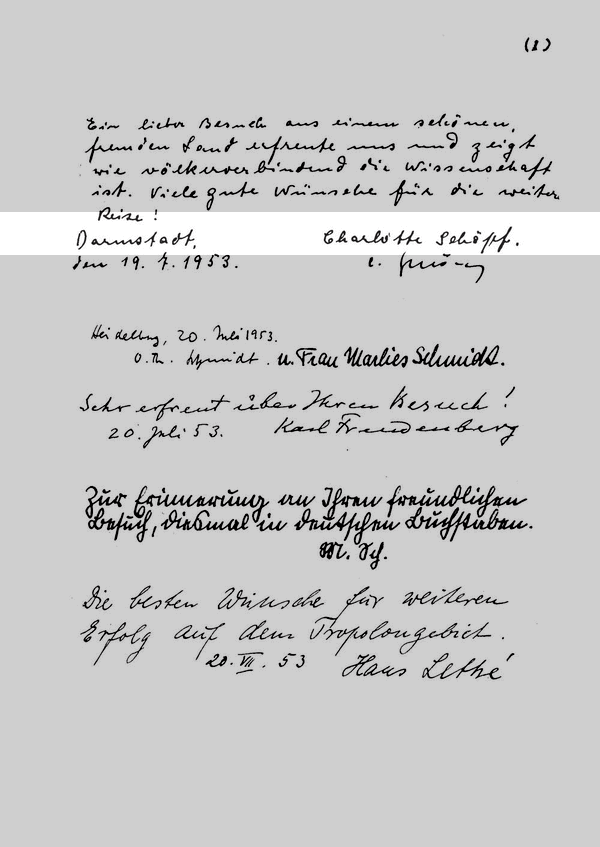 (2)
Ein lieber Besuch aus einem schönen,
fremden Land erfreute uns und zeigt
wie völkerverbindend die Wissenschaft
ist. Viele gute Wünsche für die weitere
Reise!
Darmstadt, Charlotte Schöpf.
den 19. 7. 1953. C.
Heidelberg, 20. Juli 1953.
O. Th. Schmidt. u. Frau Marlies Schmidt.
Sehr erfreut über Ihren Besuch!
20. Juli 53. Karl Freudenberg
Zur Erinnerung an Ihren freundlichen
Besuch, diesmal in deutschen Buchstaben.
M. Sch.
Die besten Wünsche für weiteren
Erfolg auf dem Tropolongebiet.
20. VII. 53 Hans Lettré